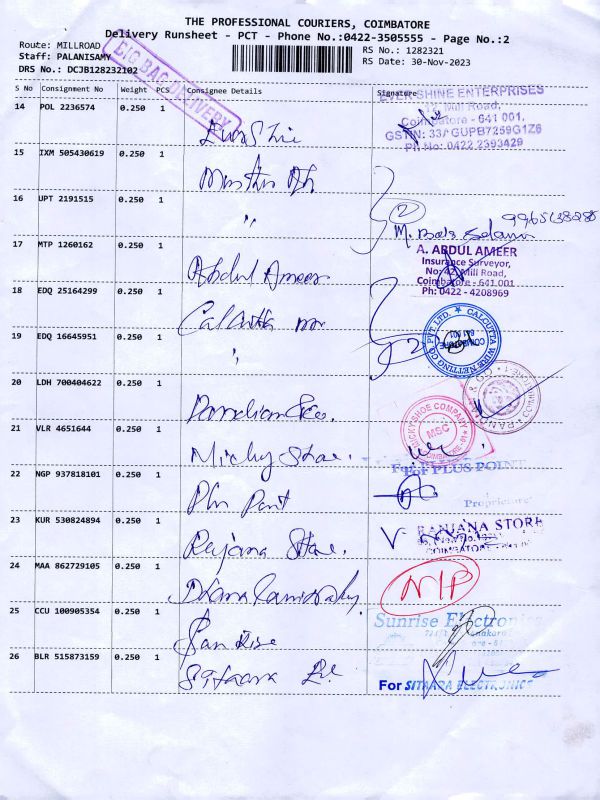 THE PROFESSIONAL COURIERS, COIMBATORE
Delivery Runsheet - PCT - Phone No.:0422-3505555 - Page No.:2
Route: MILLROAD
Staff: PALANISAMY
DRS No.: DCJB128232102
RS No.: 1282321
RS Date: 30-Nov-2023
BIG BAG DELIVERY
S No Consignment No Weight PCS Consignee Details Signature
EVERSHINE ENTERPRISES
Mill Road,
Coimbatore - 641 001.
GSTIN: 33AGUPB7259G1Z6
Ph No: 0422 2393429
14 POL 2236574 0.250 1
15 IXM 505430619 0.250 1
16 UPT 2191515 0.250 1 "
2
9965138286
M. Bala
17 MTP 1260162 0.250 1 Abdul Ameer
A. ABDUL AMEER
Insurance Surveyor,
No: 42, Mill Road,
Coimbatore - 641 001
Ph: 0422 - 4208969
18 EDQ 25164299 0.250 1 Calcutta
19 EDQ 16645951 0.250 1 "
2
CALCUTTA WIRE NETTING CO. PVT. LTD.
COIMBATORE
641 001
20 LDH 700404622 0.250 1
21 VLR 4651644 0.250 1 Micky Shoe.
MICKY SHOE COMPANY
MSC
For PLUS POINT
22 NGP 937818101 0.250 1 Plus Point
Proprietor
23 KUR 530824894 0.250 1 Ranjana Store.
RANJANA STORE
COIMBATORE
24 MAA 862729105 0.250 1
N/P
25 CCU 100905354 0.250 1 Sun Rise
Sunrise Electronics
26 BLR 515873159 0.250 1 Sitaara Ele
For SITARA ELECTRONICS